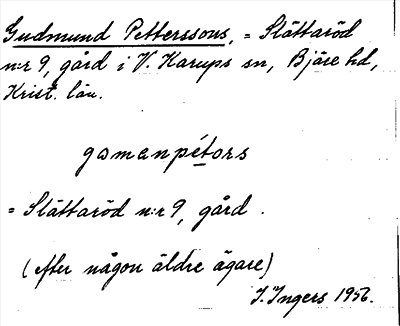 Gudmund Petterssons, = Slättaröd
n:r 9, gård i V. Karups sn, Bjäre hd,
Krist. län.
gomanpétors
= Slättaröd n:r 9, gård.
(efter någon äldre ägare)
I. Ingers 1956.